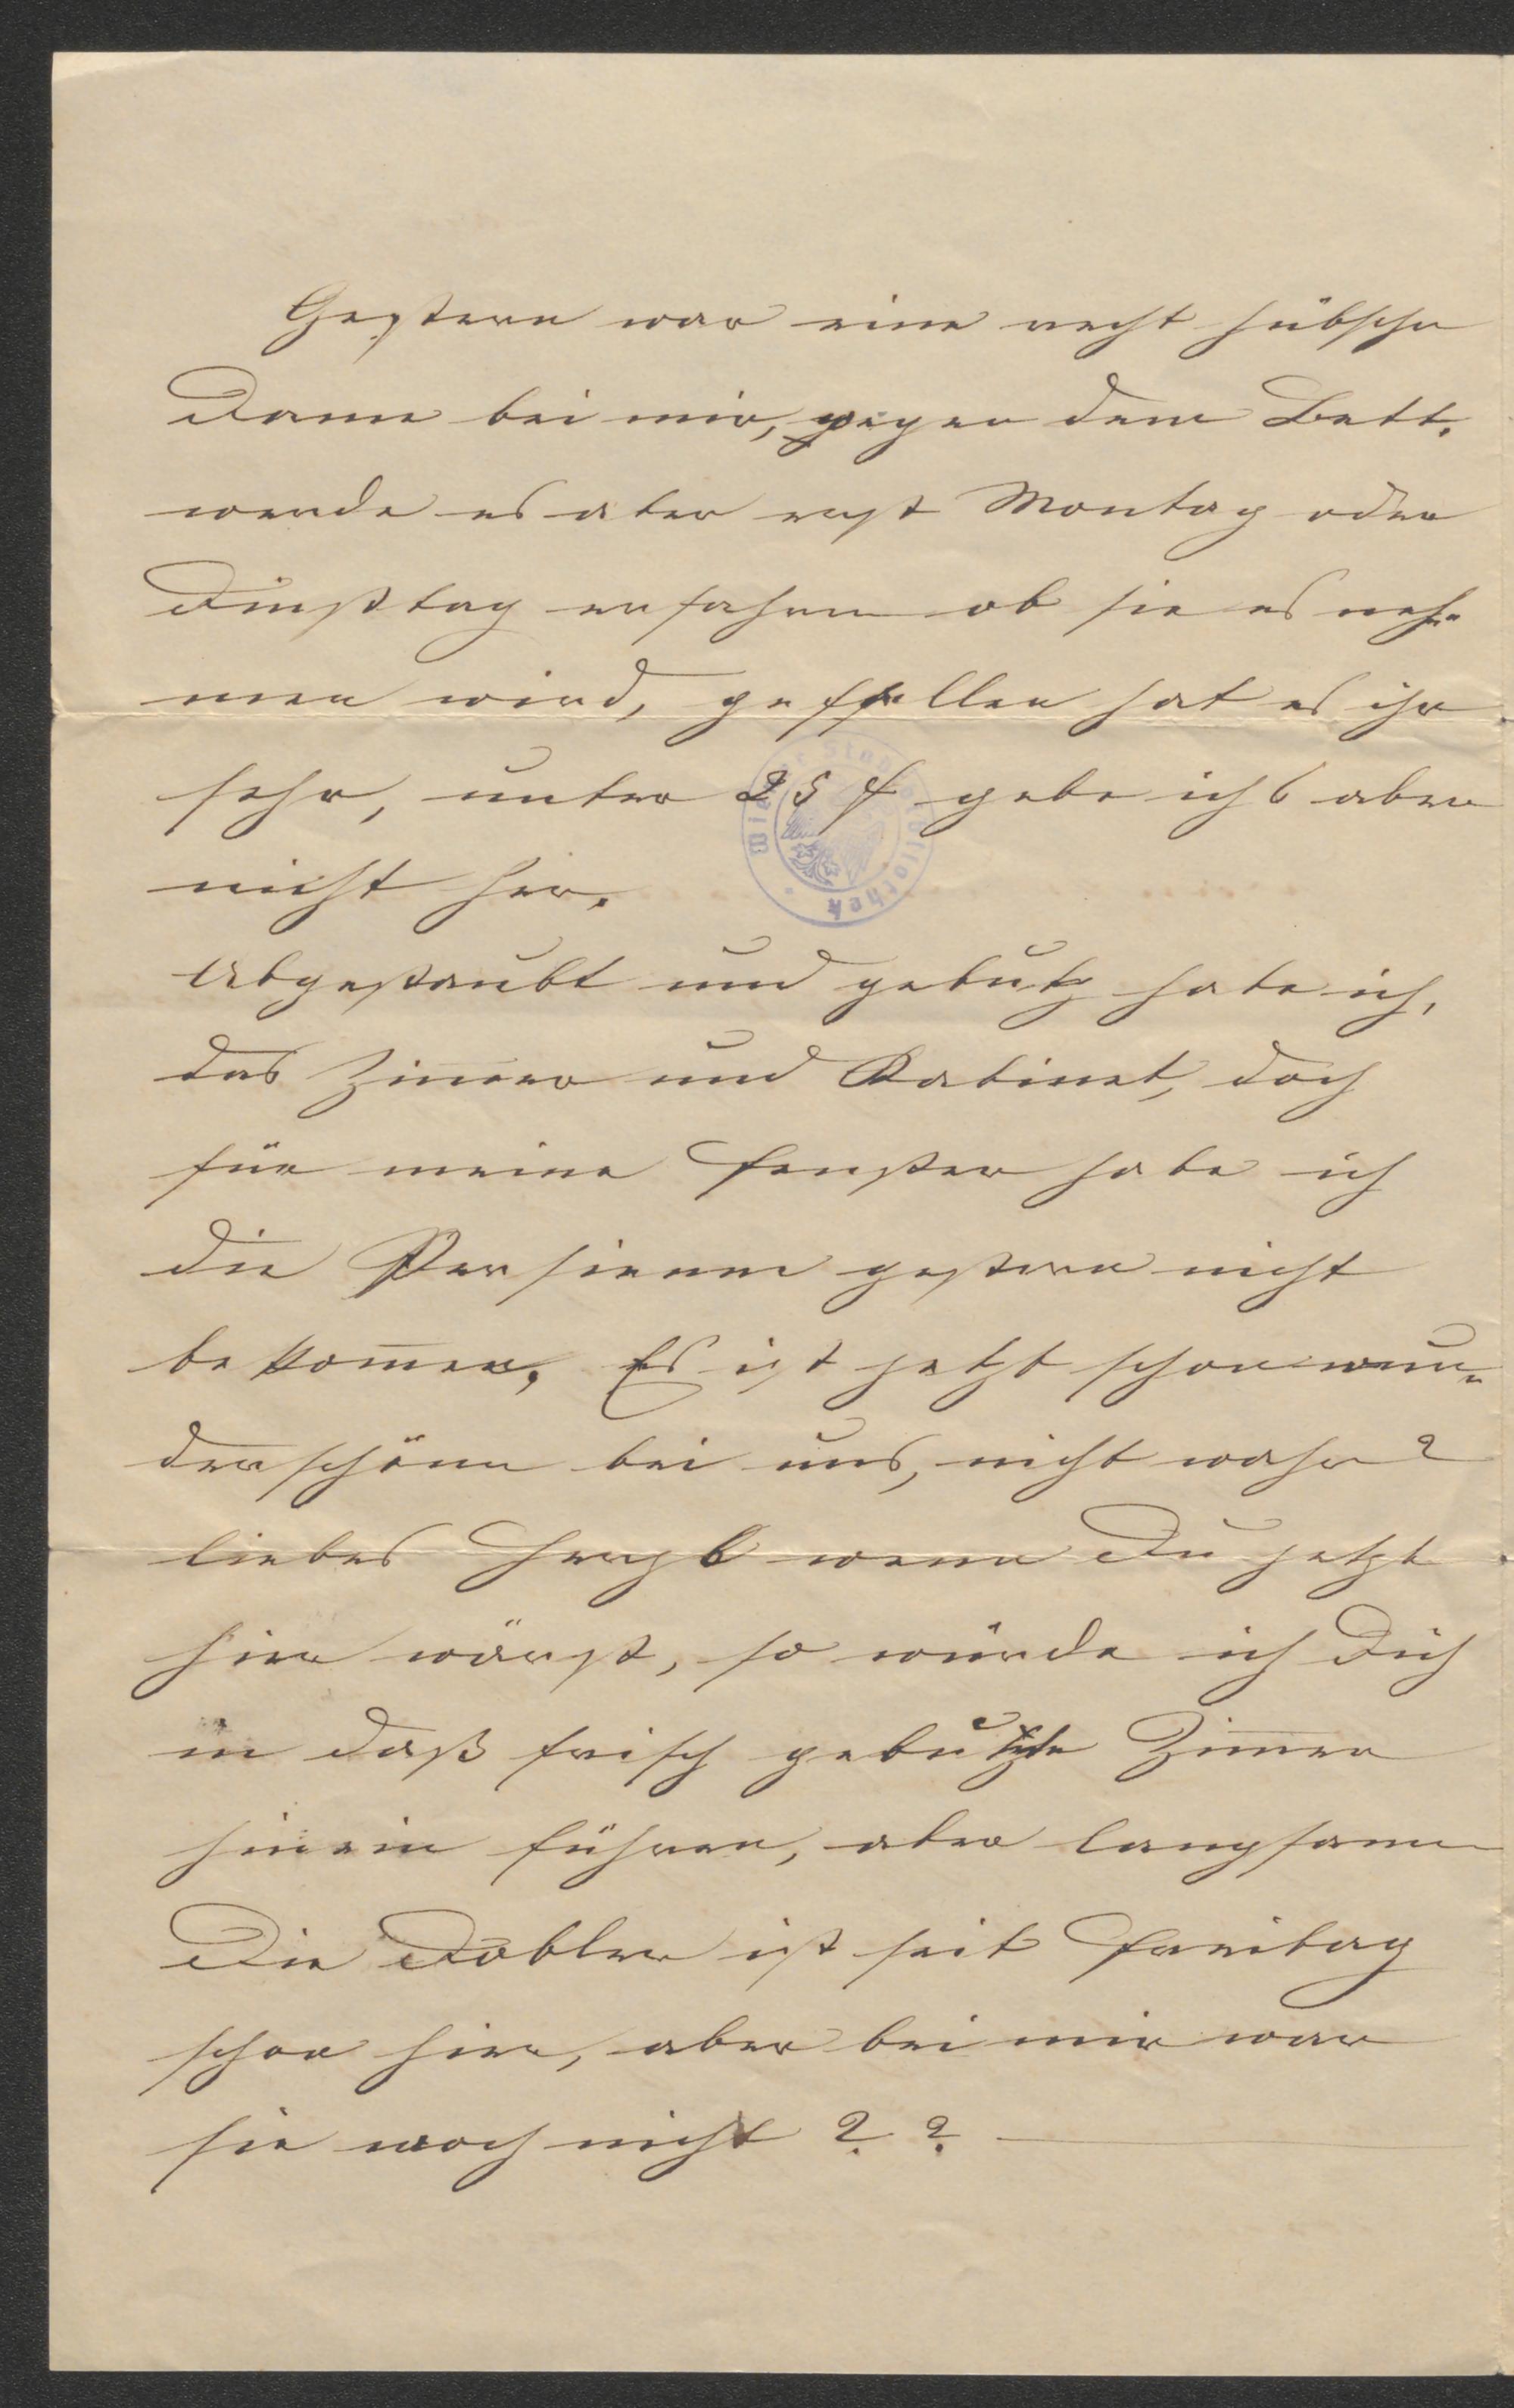 Gestern war eine recht hübsche
Dame bei mir, wegen dem Bett.
werde es aber erst Montag oder
Dinßtag erfahren ob sie es neh-
men wird, gefallen hat es ihr
sehr, unter 25 f gebe ichs aber
nicht her.
Abgestaubt und gebutz habe ich,
das Zimmer und Kabinet, doch
für meine Fenster habe ich
die Persienen gestern nicht
bekommen. Es ist jetzt schon wun-
derschönn bei uns, nicht wahr?
liebes Herzl wenn Du jetzt
hier wärest, so würde ich Dich
in daß frisch gebutzte Zimmer
hinein führen, aber langsam
Die Dobler ist seit Freitag
schon hier, aber bei mir war
sie noch nicht ? ?
Wiener Stadtbibliothek